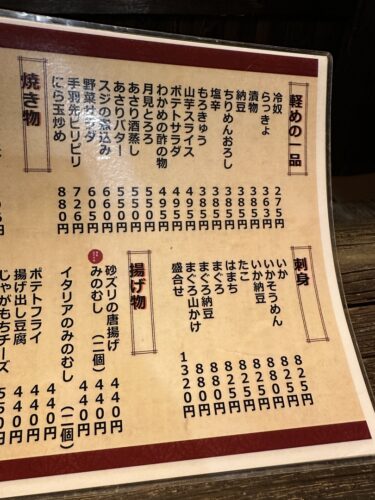 軽めの一品
冷奴 275円
らっきょ 363円
漬物 385円
納豆 385円
ちりめんおろし 385円
塩辛 385円
もろきゅう 385円
山芋スライス 495円
ポテトサラダ 495円
わかめの酢の物 495円
月見とろろ 550円
あさり酒蒸し 550円
あさりバター 550円
スジの煮込み 660円
野菜サラダ 605円
手羽先ピリピリ 726円
にら玉炒め 880円
焼き物
刺身
いか 825円
いかそうめん 825円
いか納豆 880円
たこ 825円
はまち 825円
まぐろ 825円
まぐろ納豆 880円
まぐろ山かけ 880円
盛合せ 1320円
揚げ物
砂ズリの唐揚げ 440円
みのむし（二個） 440円
イタリアのみのむし（二個） 440円
ポテトフライ 440円
揚げ出し豆腐 440円
じゃがもちチーズ 550円